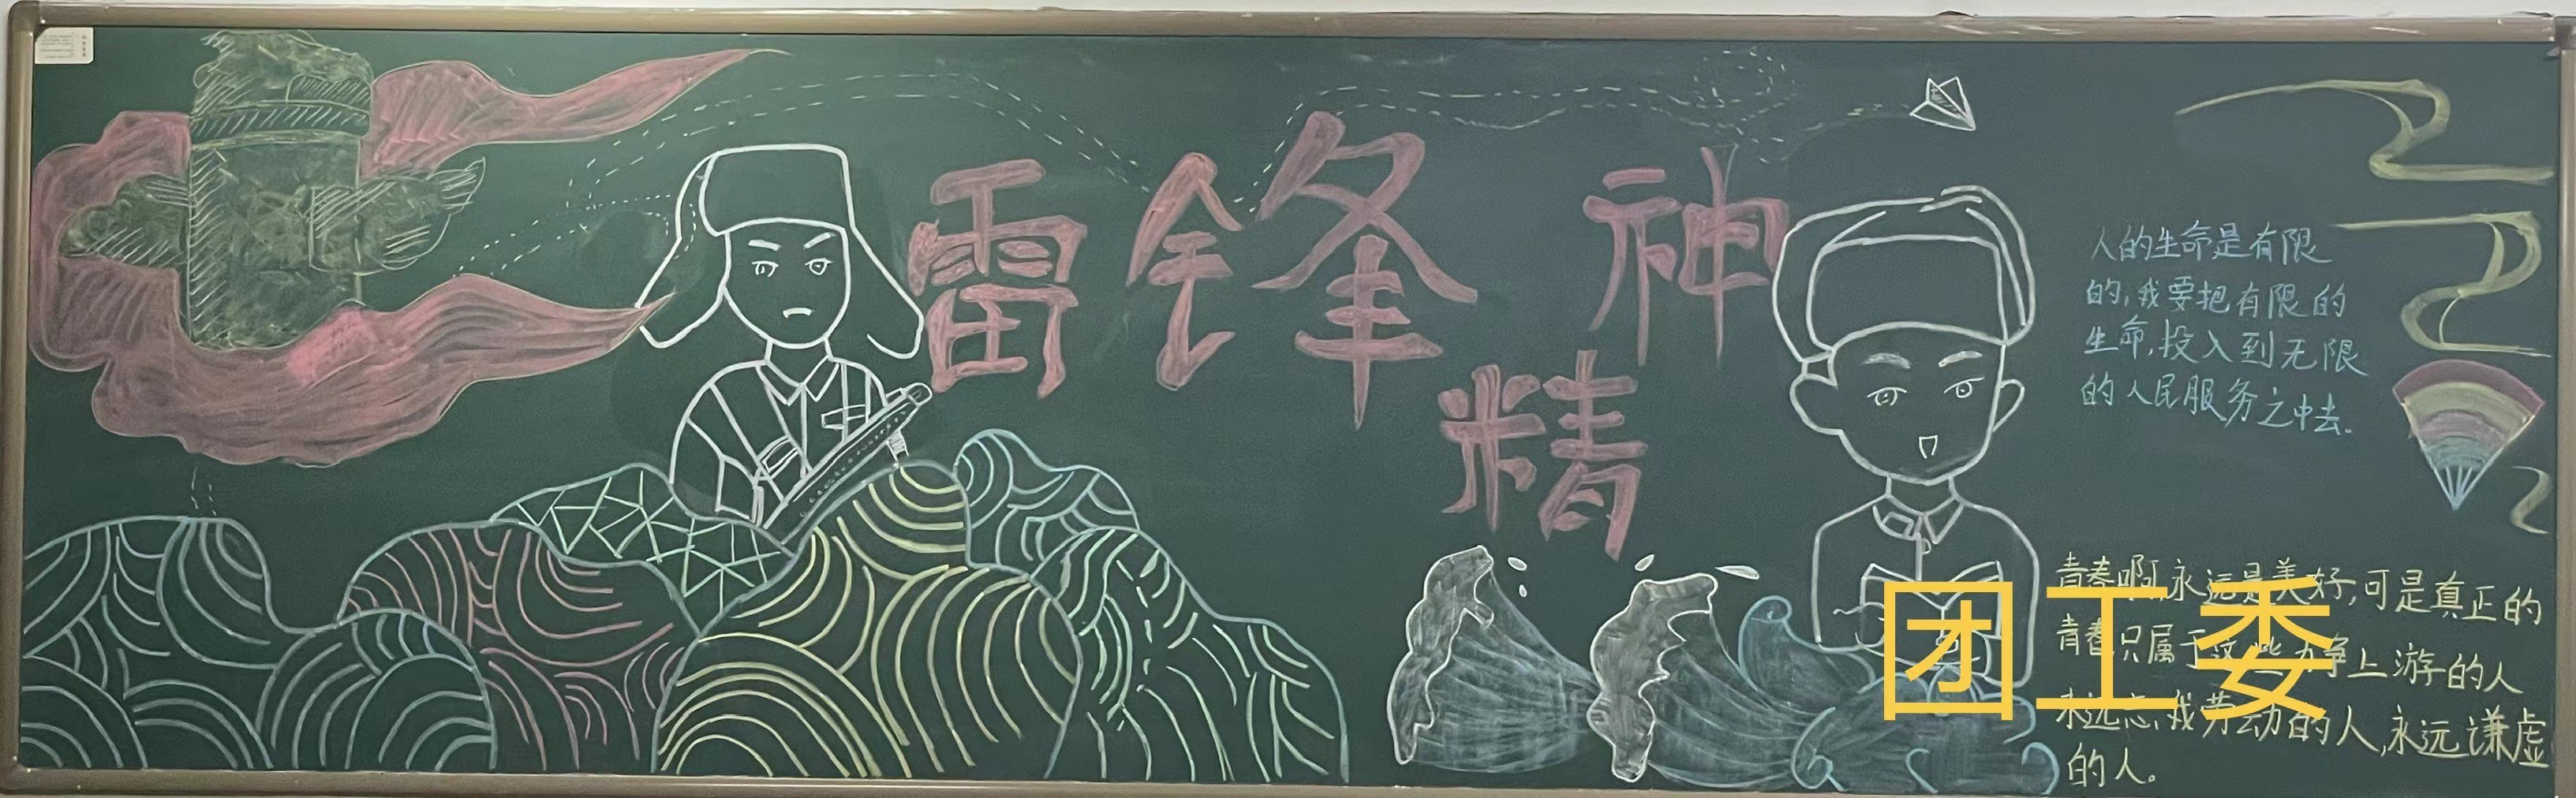 雷锋
精
神
人的生命是有限
的,我要把有限的
生命,投入到无限
的人民服务之中去。
青春啊,永远是美好,可是真正的
青春只属于这些力争上游的人
永远忘我劳动的人,永远谦虚
的人。
团工委